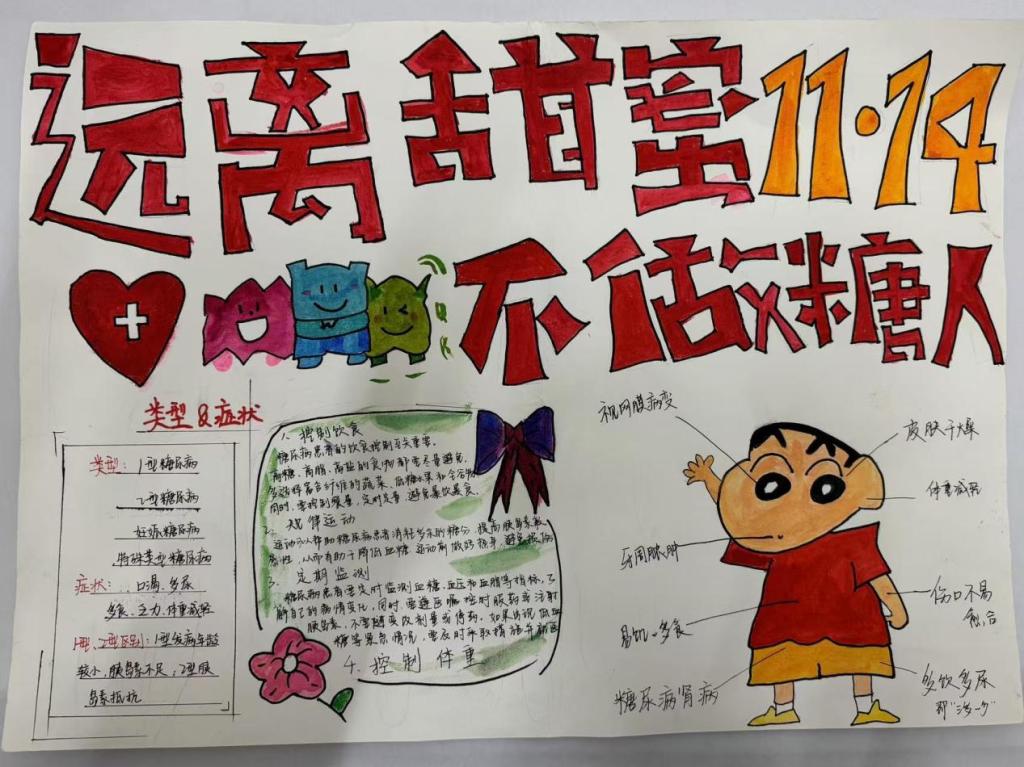 远离甜蜜11·14
不做糖人
类型&症状
类型：1型糖尿病
2型糖尿病
妊娠糖尿病
特殊类型糖尿病
症状：口渴，多尿
多食，乏力，体重减轻
1型，2型区别：1型发病年龄
较小，胰岛素不足；2型胰
岛素抵抗
1、控制饮食
糖尿病患者的饮食控制至关重要。
高糖，高脂，高盐的食物都要尽量避免，
多选择富含纤维的蔬菜，低糖水果和全谷物
同时，要控制餐量，定时定量，避免暴饮暴食。
2、规律运动
运动可以帮助糖尿病患者消耗多余的糖分，提高胰岛素敏
感性，从而有助于降低血糖，运动前做好热身，避免损伤
3、定期监测
糖尿病患者要定时监测血糖，血压和血脂等指标，了
解自己的病情变化，同时，要遵医嘱按时服药或注射
胰岛素，不要随意改剂量或停药，如果出现低血
糖等紧急情况，要及时采取措施并就医
4、控制体重
视网膜病变
皮肤干燥
体重减轻
牙周脓肿
伤口不易
愈合
易饥，多食
糖尿病肾病
多饮多尿
即“三多一少”